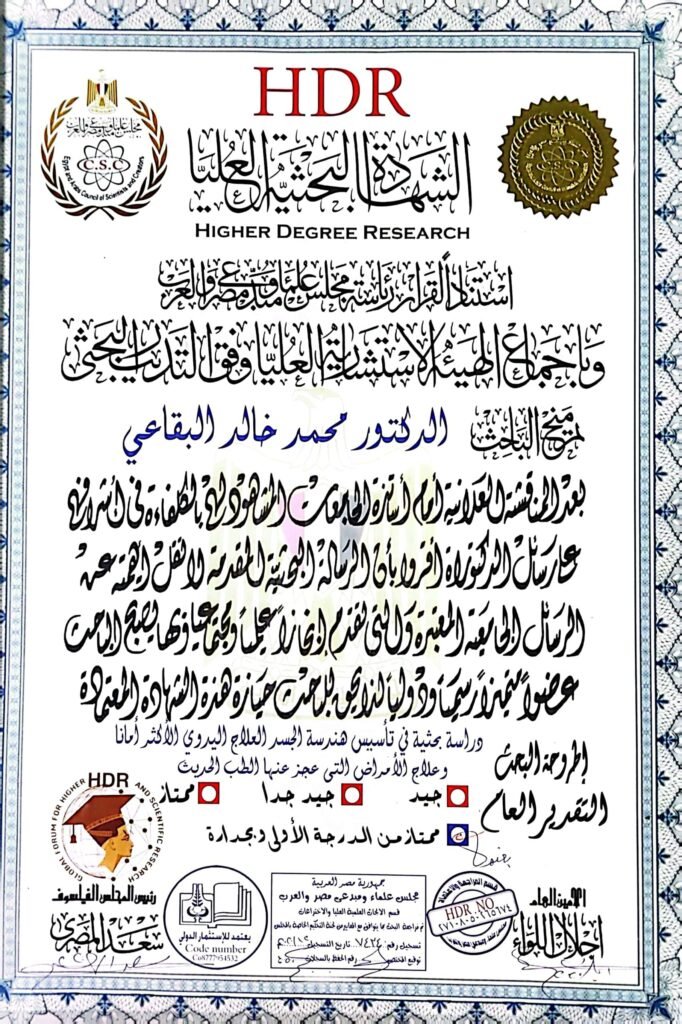 HDR
مجلس علماء ومبدعي مصر والعرب
C.S.C
Egypt and Arabs Council of Scientists and Creators
الشهادة البحثية العليا
HIGHER DEGREE RESEARCH
استناداً لقرار رئاسة مجلس علماء ومبدعي مصر والعرب
وبإجماع الهيئة الاستشارية العليا وفق التدريب البحثي
تم منح الباحث الدكتور محمد خالد البقاعي
بعد المناقشة العلانية أمام أساتذة الجامعات المشهود لهم بالكفاءة في أشرافهم
على رسائل الدكتوراة أقروا بأن الرسالة البحثية المقدمة لا تقل أهمية عن
الرسائل الجامعية المعتبرة والتي تقدم إنجازاً علمياً ومجتمعياً وبها يصبح الباحث
عضواً متميزاً رسمياً ودولياً لذا يحق للباحث حيازة هذة الشهادة المعتمدة
اطروحة البحث دراسة بحثية في تأسيس هندسة الجسد العلاج اليدوي الأكثر أمانا
وعلاج الأمراض التي عجز عنها الطب الحديث
التقدير العام جيد جيد جدا ممتاز
ممتاز من الدرجة الأولى وبجدارة
HDR
GLOBAL FORUM FOR HIGHER AND SCIENTIFIC RESEARCH
رئيس المجلس الفيلسوف
سعد المصري
يعتمد للإستثمار الدولي
Code number
جمهورية مصر العربية
مجلس علماء ومبدعي مصر والعرب
قسم الابحاث العلمية العليا والاختراعات
تم مراجعة البحث بما يتوافق مع المعايير من لجنة التحكيم الخاصة بالمجلس
تسجيل رقم: تاريخ التسجيل
توقيع المختص رقم الحفظ بالسجلات
HDR NO
الامين العام
اجلال اللواء